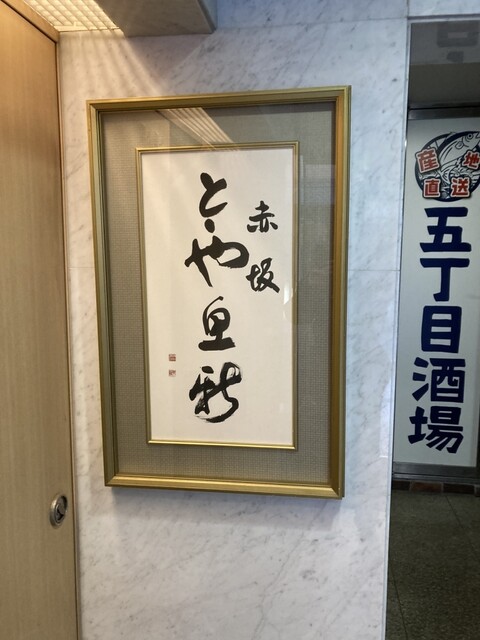 赤坂
とゝや魚新
産地
直送
五丁目酒場